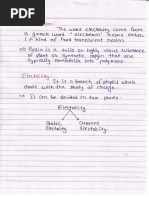 The word electricity came from
a greek word "elektron" means amber
(A kind of hard translucent resin)
⇒ Resin is a solid or highly viscous substance
of plant or synthetic origin that are
typically convertible into polymers.
Electricity:
It is a branch of physics which
deals with the study of charge.
⇒ It can be divided in two parts:
Electricity
Static Current
Electricity Electricity